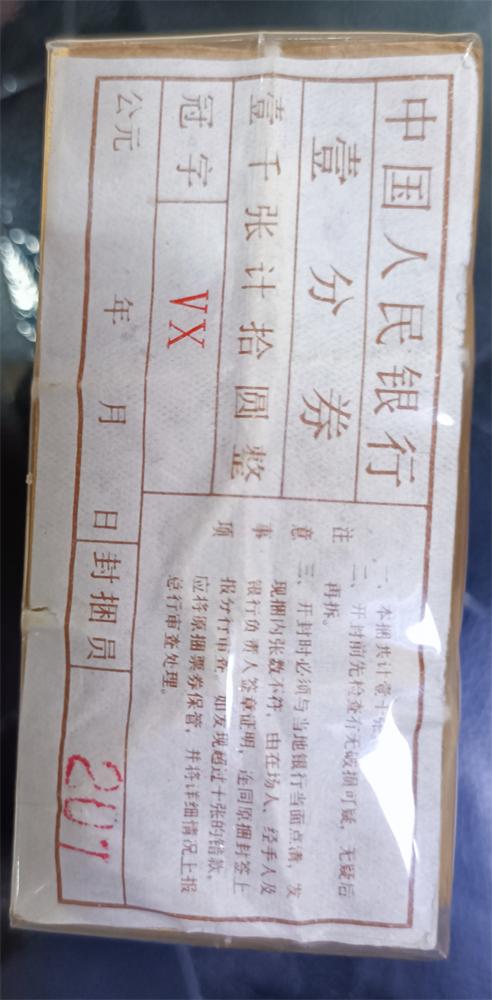 中国人民银行
壹分券
壹千张计拾圆整
冠字 VX
公元 年 月 日 封捆员 207
注意事项
一、本捆共计壹千张
二、开封前先检查有无破损可疑，无疑后
再拆。
三、开封时必须与当地银行当面点清，发
现捆内张数不符，由在场人、经手人及
银行负责人签章证明，连同原捆封签上
报分行审查，如发现超过十张的错款，
应将原捆票券保管，并将详细情况上报
总行审查处理。